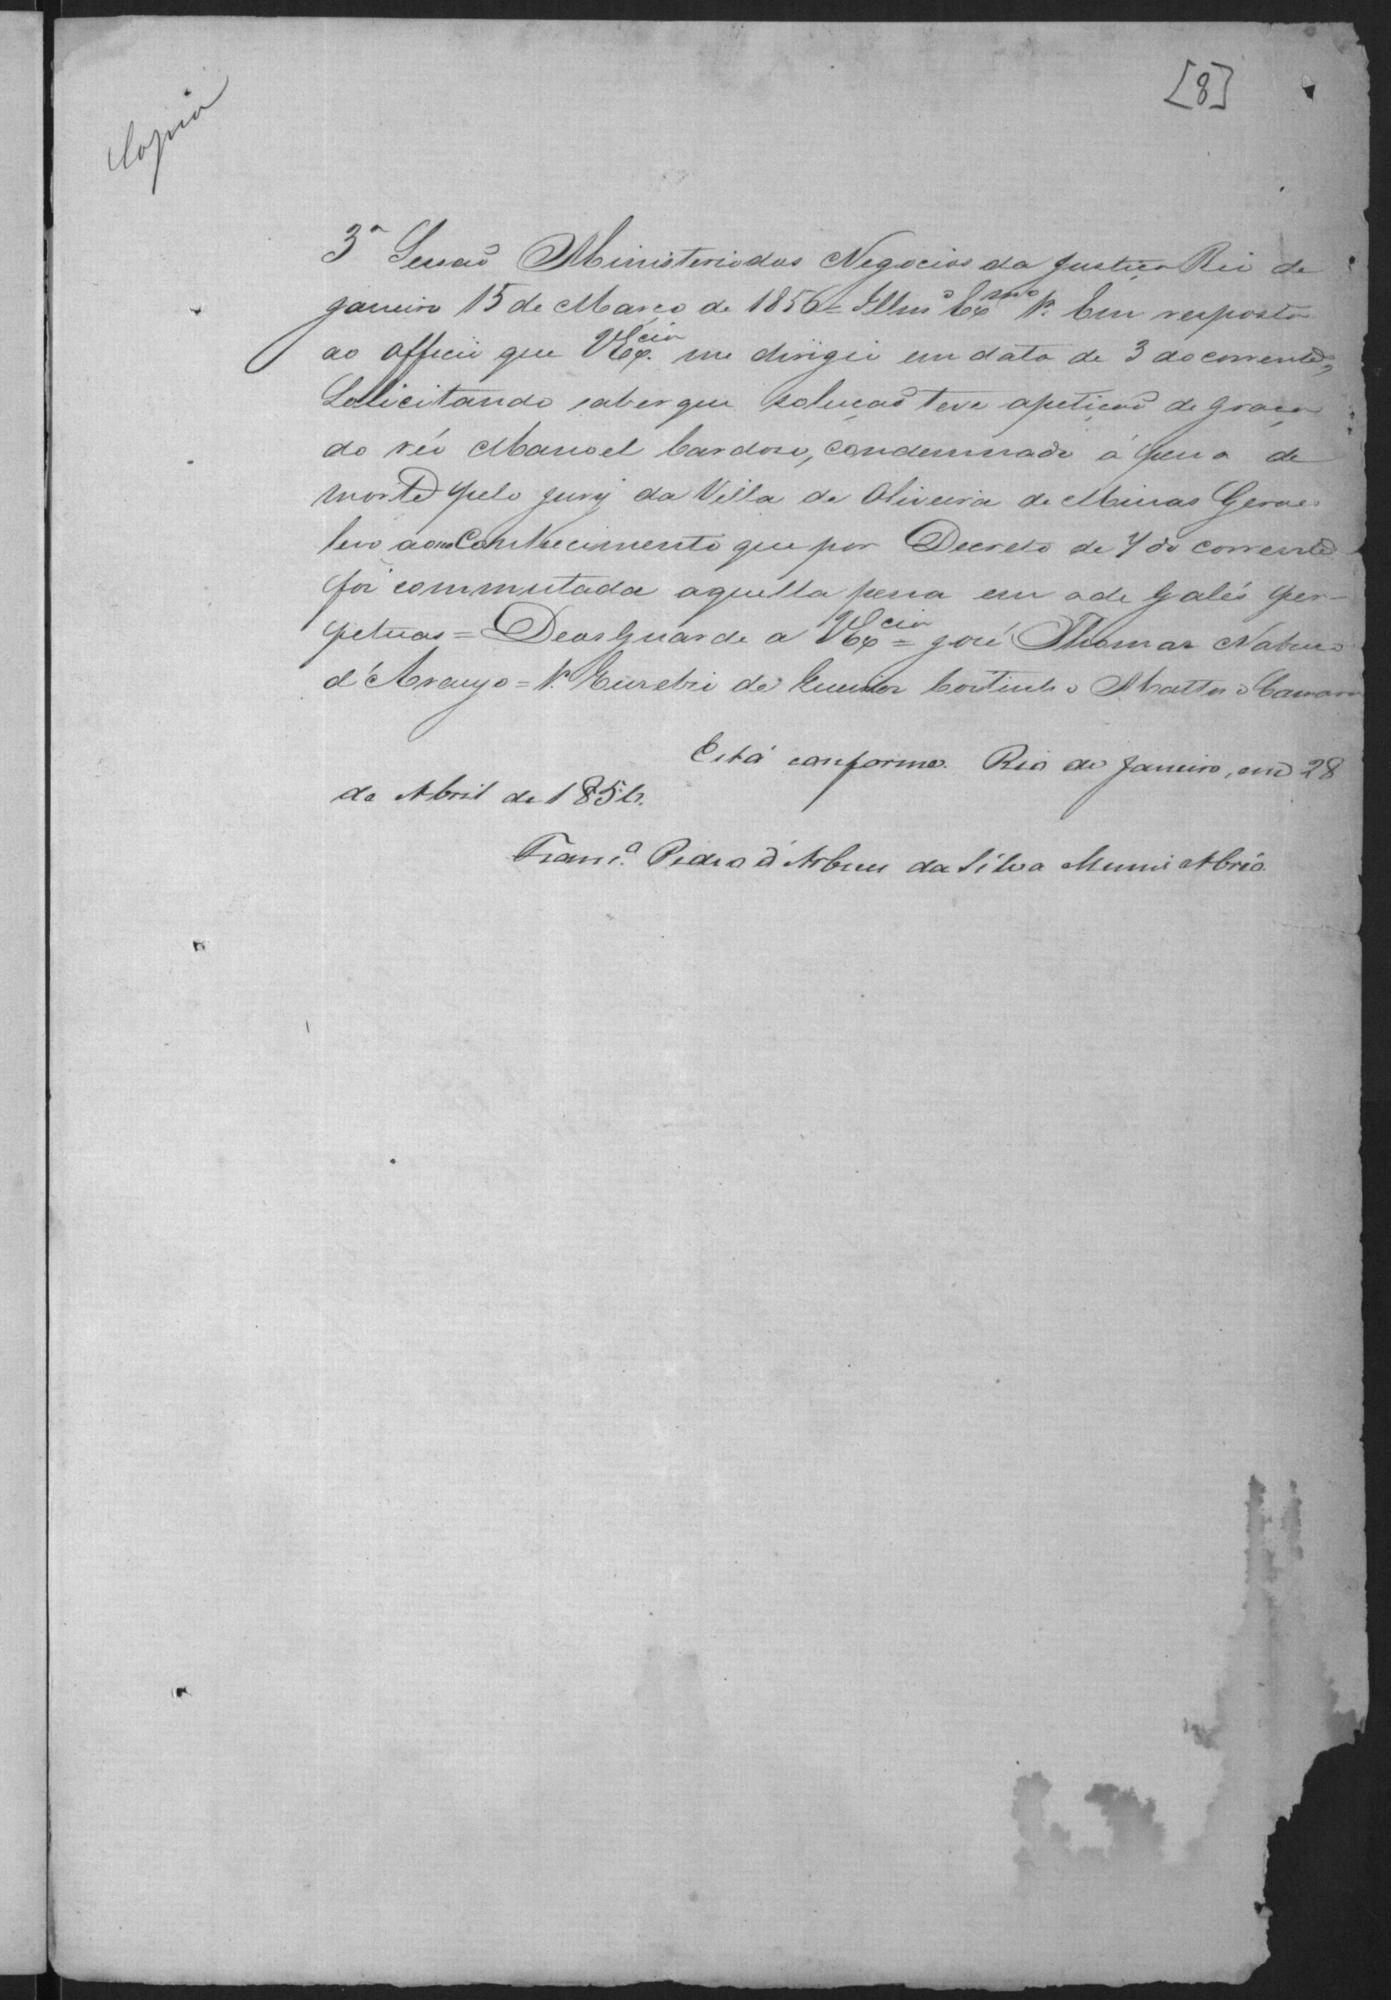 [8]
Copia
3ª Secção Ministerio dos Negocios da Justiça Rio de
Janeiro 15 de Março de 1856 = Illmº Exmo Sr. Em resposta
ao officio que VExcia. me dirigio em data de 3 do corrente,
Solicitando saber que solução teve a petição de graça
do réo Manoel Cardoso, condemnado á pena de
morte pelo jury da Villa de Oliveira de Minas Geraes
levo ao seo Conhecimento que por Decreto de 7 do corrente
foi commutada aquella pena em a de galés per-
petuas = Deos Guarde a VExcia = José Thomas Nabuco
d'Araujo = Sr. Euzebio de Queiroz Coutinho Mattoso Camara
Está conforme. Rio de Janeiro, em 28
de Abril de 1856.
Franc.º Pedro d'Arbues da Silva Muniz Abreo.